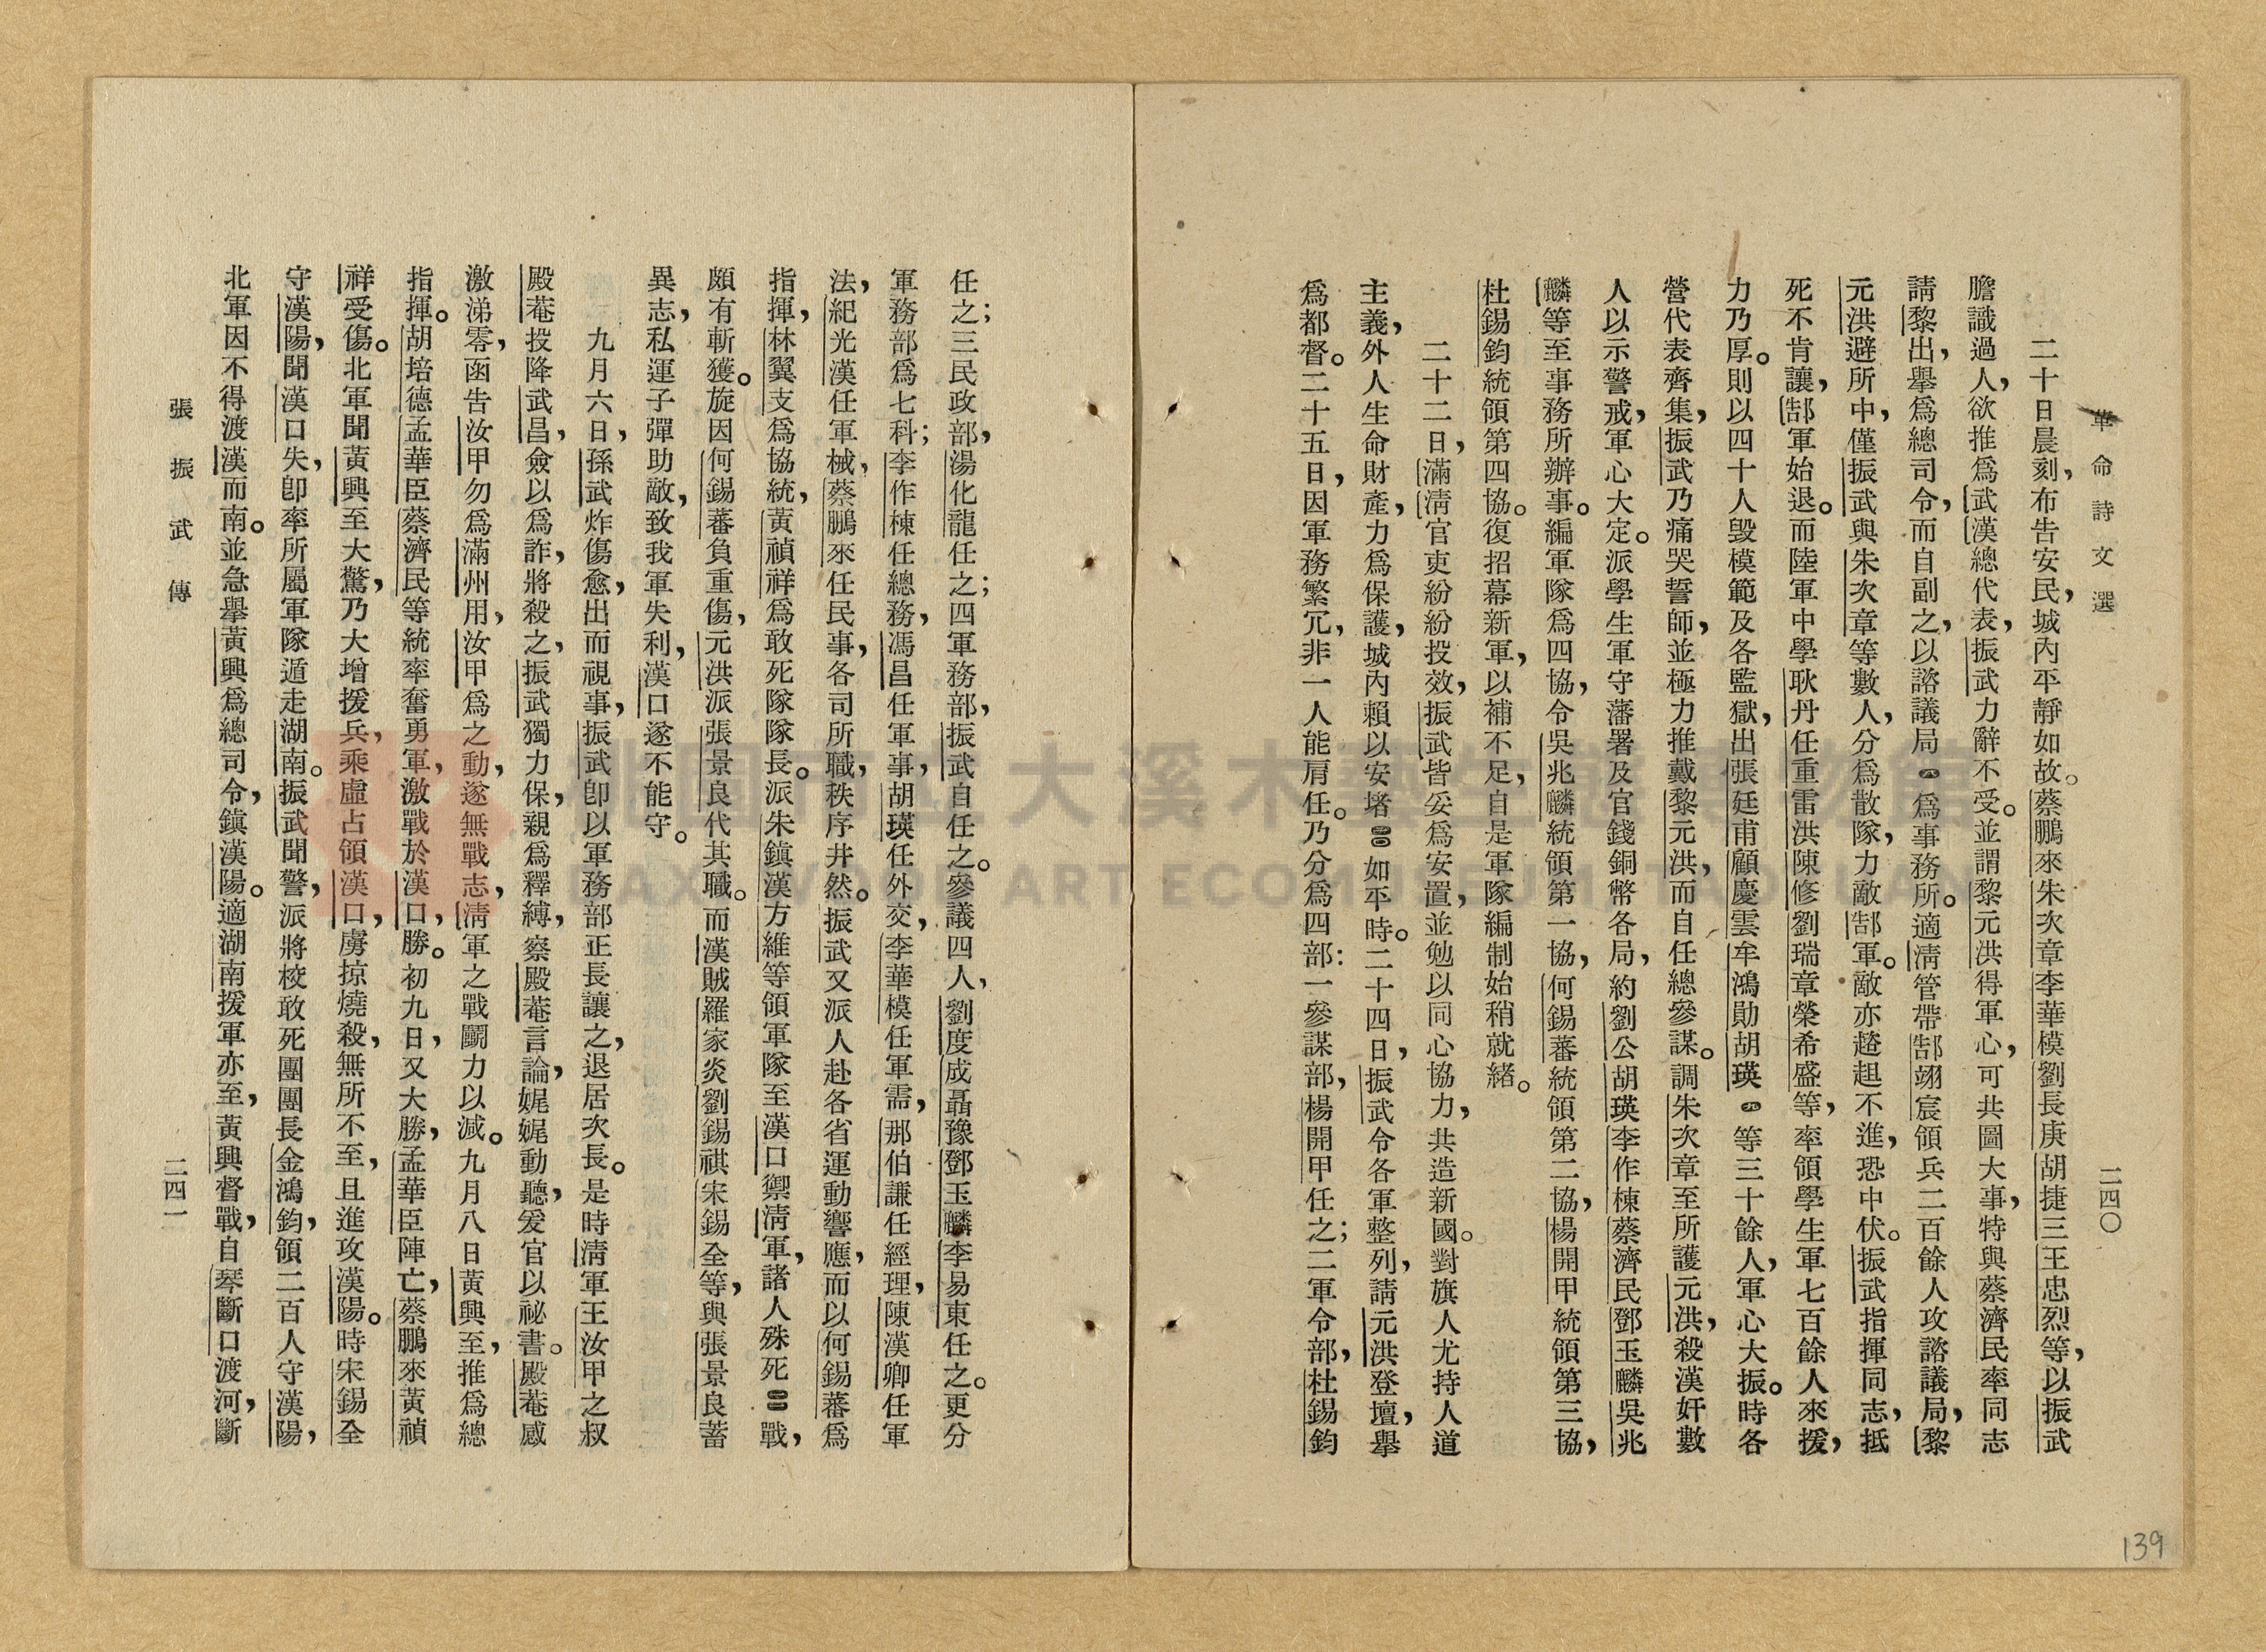 革命詩文選
二四〇
二十日晨刻，布告安民，城內平靜如故。蔡鵬來朱次章李華模劉長庚胡捷三王忠烈等，以振武
膽識過人，欲推爲武漢總代表，振武力辭不受。並謂黎元洪得軍心，可共圖大事，特與蔡濟民率同志
請黎出，舉爲總司令，而自副之，以諮議局爲事務所。適淸管帶郜翊宸領兵二百餘人攻諮議局，黎
元洪避所中，僅振武與朱次章等數人，分爲散隊，力敵郜軍。敵亦趦趄不進，恐中伏。振武指揮同志，抵
死不肯讓，郜軍始退。而陸軍中學耿丹任重雷洪陳修劉瑞章榮希盛等，率領學生軍七百餘人來援，
力乃厚。則以四十人毀模範及各監獄，出張廷甫顧慶雲牟鴻勛胡瑛等三十餘人，軍心大振。時各
營代表齊集，振武乃痛哭誓師，並極力推戴黎元洪，而自任總參謀。調朱次章至所護元洪，殺漢奸數
人以示警戒，軍心大定。派學生軍守藩署及官錢銅幣各局，約劉公胡瑛李作棟蔡濟民鄧玉麟吳兆
麟等至事務所辦事。編軍隊爲四協，令吳兆麟統領第一協，何錫蕃統領第二協，楊開甲統領第三協，
杜錫鈞統領第四協。復招幕新軍，以補不足，自是軍隊編制始稍就緒。
二十二日，滿淸官吏紛紛投效，振武皆妥爲安置，並勉以同心協力，共造新國。對旗人尤持人道
主義，外人生命財產，力爲保護，城內賴以安堵如平時。二十四日，振武令各軍整列，請元洪登壇，舉
爲都督。二十五日，因軍務繁冗，非一人能肩任。乃分爲四部：一參謀部，楊開甲任之；二軍令部，杜錫鈞
任之；三民政部，湯化龍任之；四軍務部，振武自任之。參議四人，劉度成聶豫鄧玉麟李易東任之。更分
軍務部爲七科；李作棟任總務，馮昌任軍事，胡瑛任外交，李華模任軍需，那伯謙任經理，陳漢卿任軍
法，紀光漢任軍械，蔡鵬來任民事，各司所職，秩序井然。振武又派人赴各省運動響應，而以何錫蕃爲
指揮，林翼支爲協統，黃禎祥爲敢死隊隊長。派朱鎭漢方維等領軍隊至漢口禦淸軍，諸人殊死戰，
頗有斬獲。旋因何錫蕃負重傷，元洪派張景良代其職。而漢賊羅家炎劉錫祺宋錫全等，與張景良蓄
異志，私運子彈助敵，致我軍失利，漢口遂不能守。
九月六日，孫武炸傷愈，出而視事，振武卽以軍務部正長讓之，退居次長。是時淸軍王汝甲之叔
殿菴投降武昌，僉以爲詐，將殺之，振武獨力保，親爲釋縛，察殿菴言論，娓娓動聽，爰官以祕書。殿菴感
激涕零，函告汝甲勿爲滿州用，汝甲爲之動，遂無戰志，淸軍之戰鬭力以減。九月八日黃興至，推爲總
指揮。胡培德孟華臣蔡濟民等統率奮勇軍，激戰於漢口，勝。初九日，又大勝，孟華臣陣亡，蔡鵬來黃禎
祥受傷。北軍聞黃興至大驚，乃大增援兵，乘虛占領漢口，虜掠燒殺，無所不至，且進攻漢陽。時宋錫全
守漢陽，聞漢口失，卽率所屬軍隊遁走湖南。振武聞警，派將校敢死團團長金鴻鈞，領二百人守漢陽，
北軍因不得渡漢而南。並急舉黃興爲總司令，鎭漢陽。適湖南援軍亦至，黃興督戰，自琴斷口渡河，斷
張振武傳
二四一
139
桃園市立大溪木藝生態博物館
DAXI WOOD ART ECOMUSEUM TAOYUAN